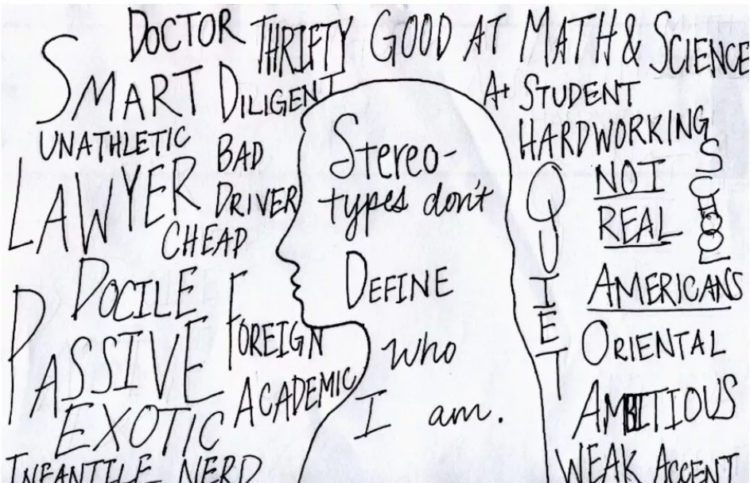 DOCTOR
THRIFTY
GOOD AT MATH & SCIENCE
SMART
DILIGENT
A+ STUDENT
UNATHLETIC
BAD
DRIVER
HARDWORKING
LAWYER
CHEAP
QUIET
NOT
REAL
AMERICANS
DOCILE
FOREIGN
ORIENTAL
PASSIVE
ACADEMIC
AMBITIOUS
EXOTIC
INFANTILE NERD
WEAK ACCENT
Stereo-
types don't
DEFINE
who
I am.